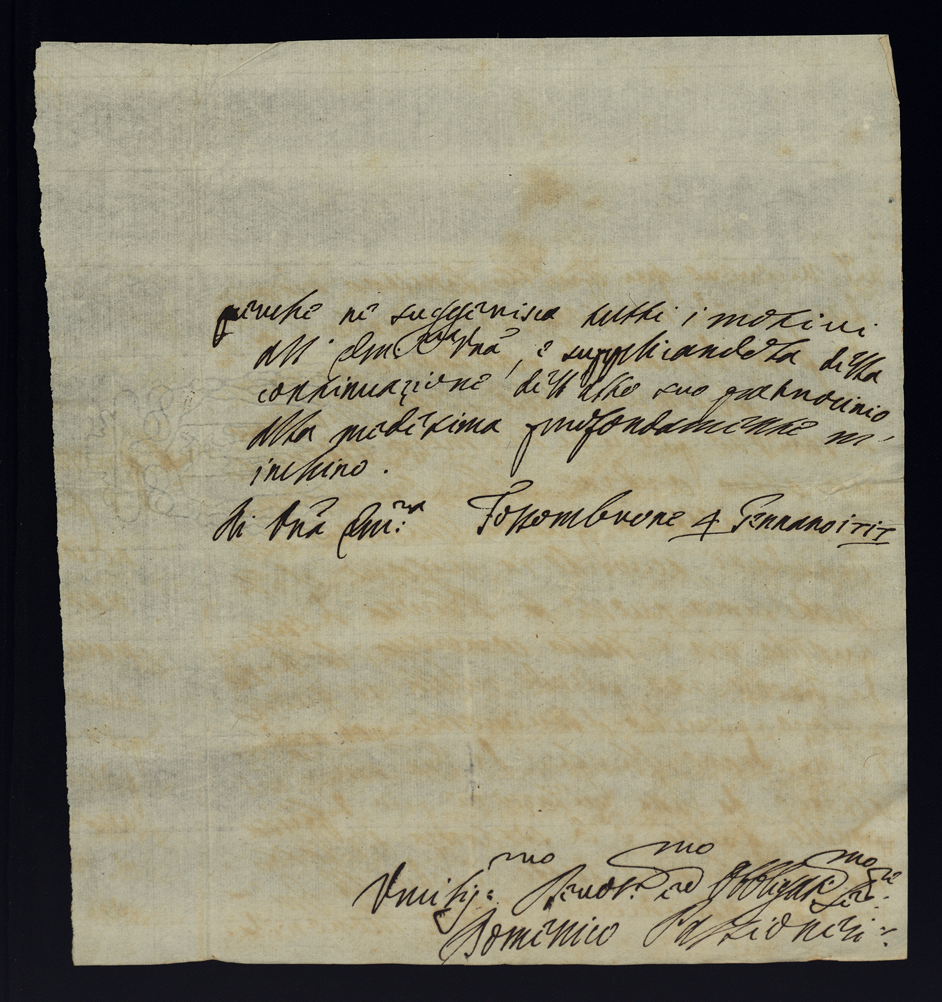 perche ne suggerisca tutti i motivi
all' Em.za Vrã, e supplicandola della
continuazione dell'alto suo patrocinio
alla medesima profondamente m'
inchino.
Di Vrã Em.za Fossombrone 4 Gennaro 1717
Umilis.mo Devot.mo ed Obbligat.mo Ser.re
Domenico Passionei